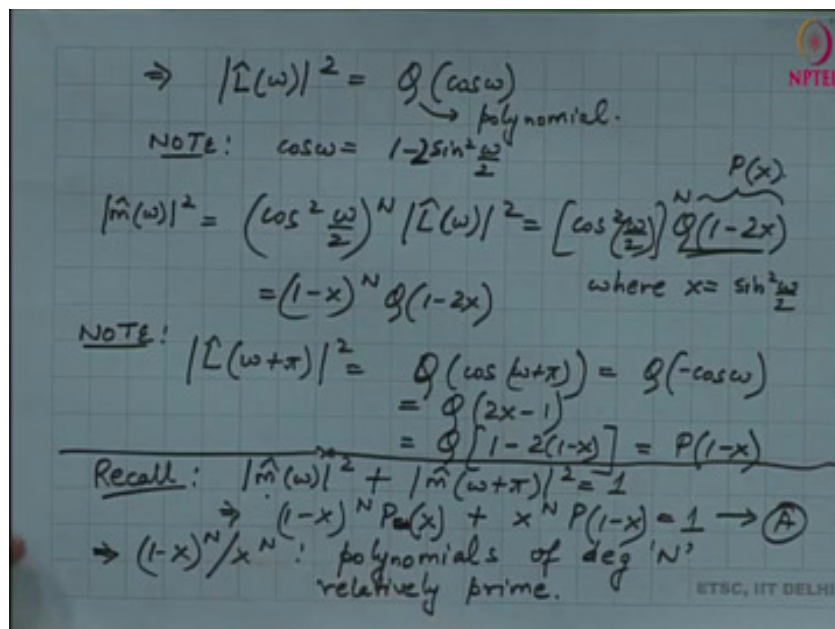 ⇒ |L̂(ω)|² = Q(cosω)
→ polynomial.
NOTE: cosω = 1-2sin² ω/2
P(x)
|m̂(ω)|² = (cos² ω/2)^N |L̂(ω)|² = [cos²(ω/2)]^N Q(1-2x)
= (1-x)^N Q(1-2x) where x = sin² ω/2
NOTE:
|L̂(ω+π)|² = Q(cos(ω+π)) = Q(-cosω)
= Q(2x-1)
= Q[1-2(1-x)] = P(1-x)
Recall: |m̂(ω)|² + |m̂(ω+π)|² = 1
⇒ (1-x)^N P(x) + x^N P(1-x) = 1 → Ⓐ
⇒ (1-x)^N / x^N : polynomials of deg 'N'
relatively prime.
NPTEL
ETSC, IIT DELHI